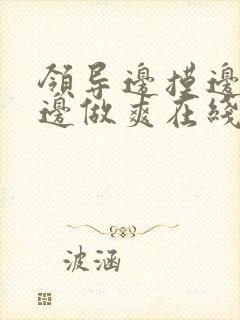 領导邊摸邊
邊做爽在綫
波涵